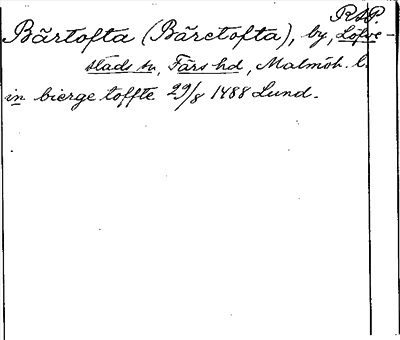 RAP.
Bärtofta (Bäretofta), by, Löfve-
stads sn, Färs hd, Malmöh. l.
in bierge toffte 29/8 1488 Lund.